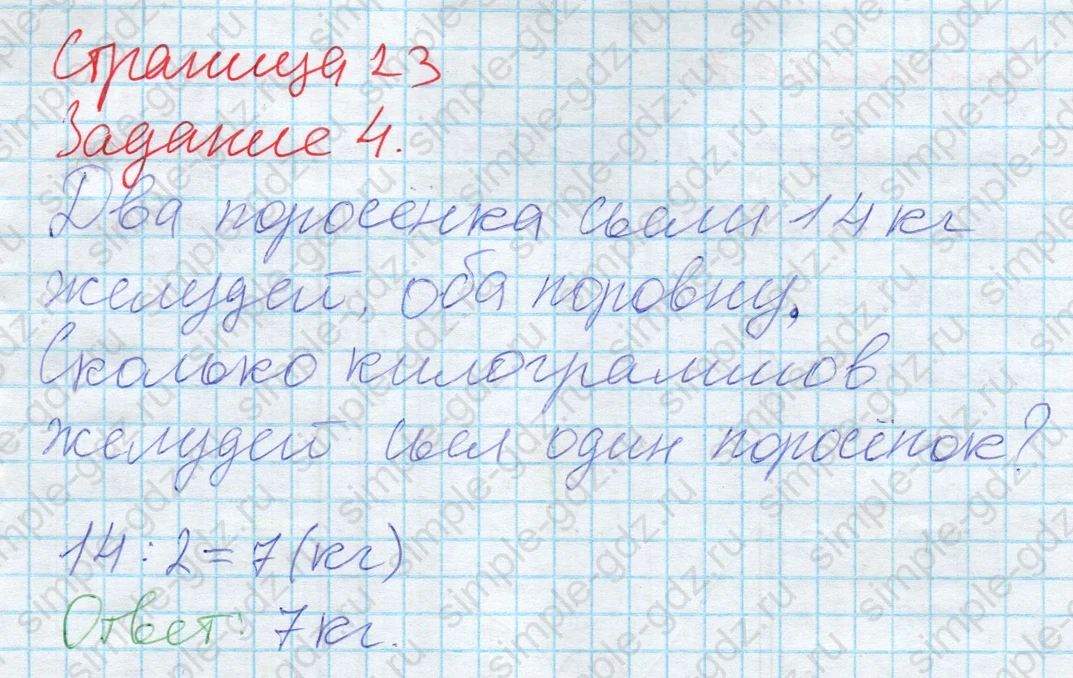 Страница 23
Задание 4.
Два поросёнка сьели 14 кг
желудей, оба поровну.
Сколько килограммов
желудей сьел один поросёнок?
14 : 2 = 7 (кг)
Ответ: 7 кг.
simple-gdz.ru